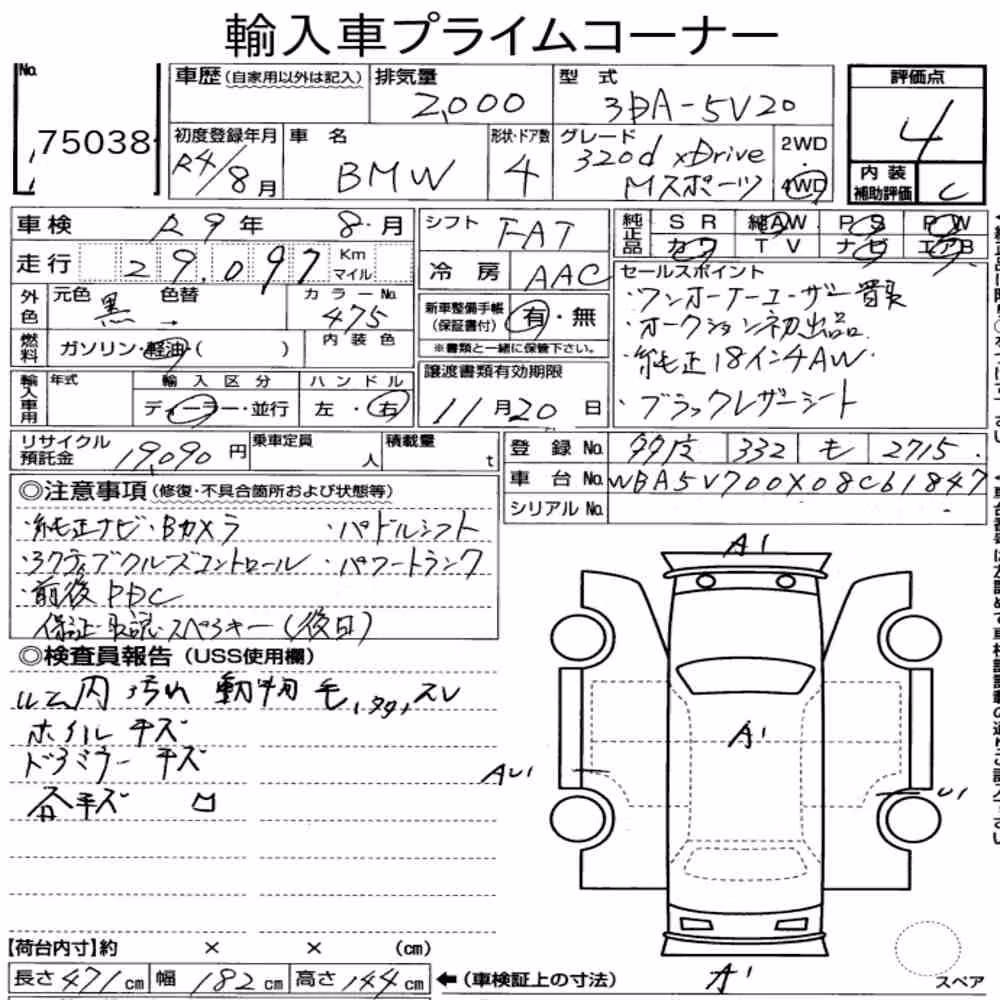 輸入車プライムコーナー
No.
75038
車歴(自家用以外は記入)
排気量
2,000
型 式
3DA-5V20
評価点
4
初度登録年月
R4/8月
車 名
BMW
形状・ドア数
4
グレード
320d xDrive
Mスポーツ
2WD
4WD
内装
補助評価
C
車検 R9年 8月
走行 29,097 Km
マイル
シフト FAT
冷房 AAC
純正品
SR 純AW PS PW
カワ TV ナビ エアB
外色
元色 黒
色替
カラーNo.
475
燃料
ガソリン・軽油( )
内装色
新車整備手帳
(保証書付)
有・無
※書類と一緒に保管下さい。
セールスポイント
・ワンオーナーユーザー買取
・オークション初出品
・純正18インチAW
・ブラックレザーシート
輸入車用
年式
輸入区分
ディーラー・並行
ハンドル
左・右
譲渡書類有効期限
11月20日
リサイクル
預託金
19,090円
乗車定員
人
積載量
t
登録No. 332 も 2715
車台No. WBA5V700X08C61847
シリアルNo.
◎注意事項(修復・不具合箇所および状態等)
・純正ナビ・Bカメラ ・パドルシフト
・アクティブクルーズコントロール ・パワートランク
・前後PDC
保証・取説・スペアキー(後日)
◎検査員報告(USS使用欄)
ルーム内 汚れ 動物毛
ホイルキズ
ドアミラーキズ
各キズ
A1
A1
AU1
U1
A1
【荷台内寸】約 × × (cm)
長さ471cm 幅182cm 高さ144cm
←(車検証上の寸法)
スペア